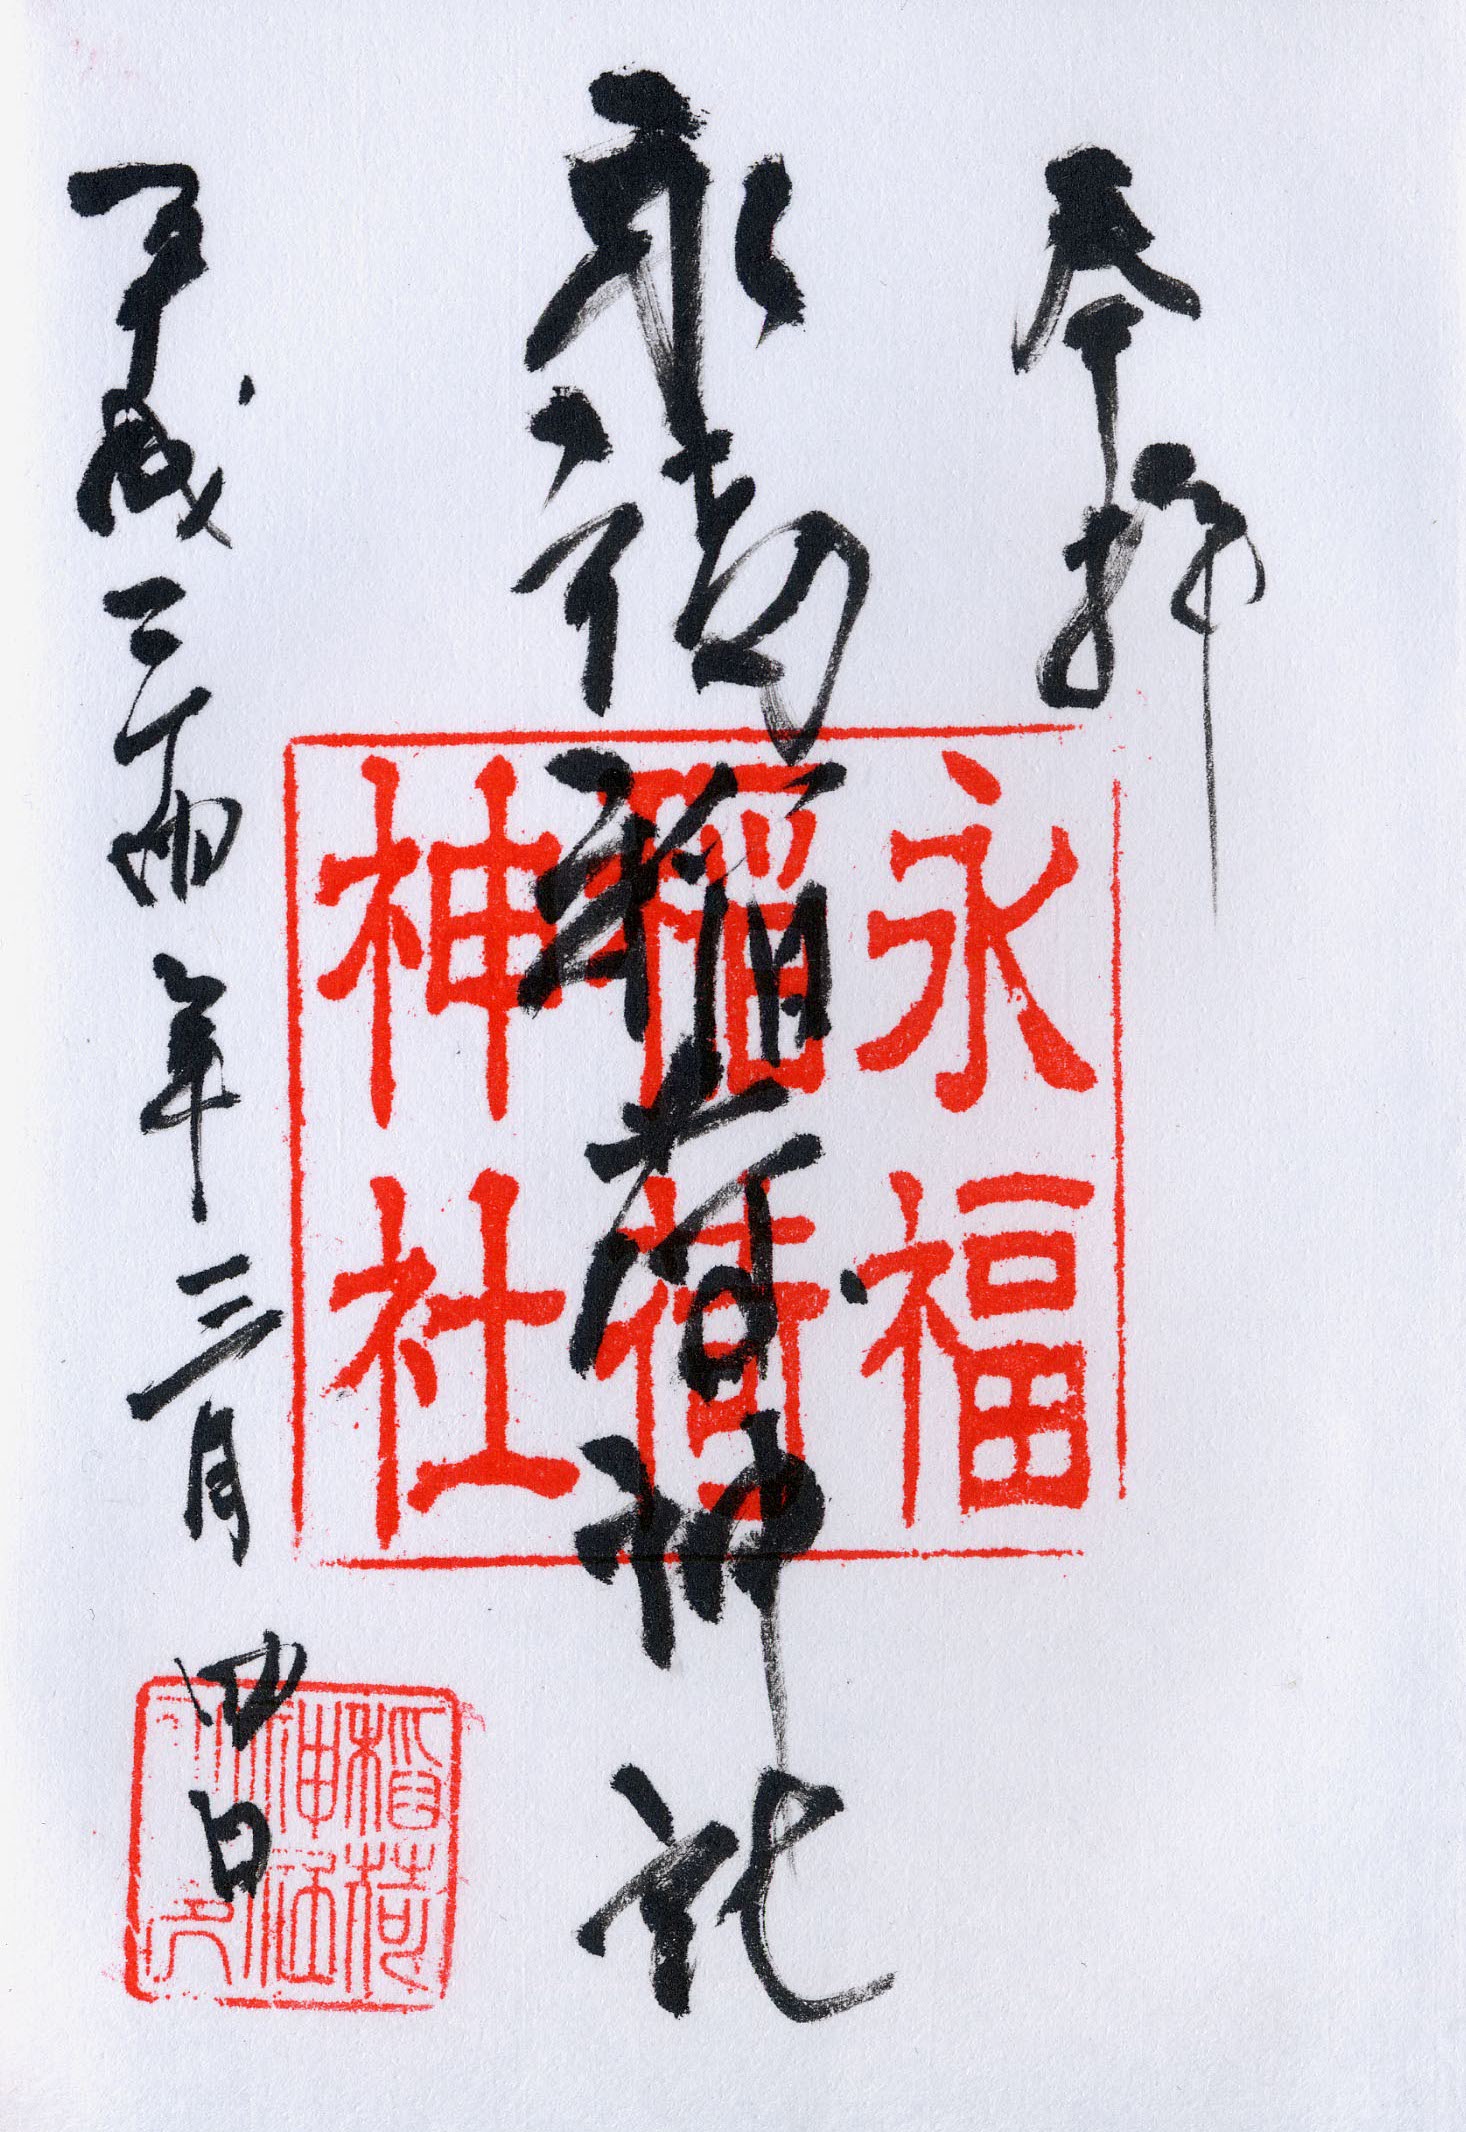 奉拝
永福稲荷神社
平成二十四年三月四日
永福
稲荷
神社
稲荷
神社